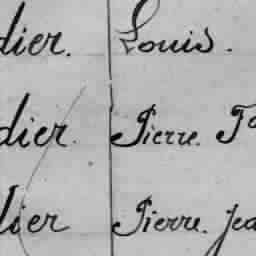 dier. Louis.
dier. Pierre. F
dier Pierre. Jea